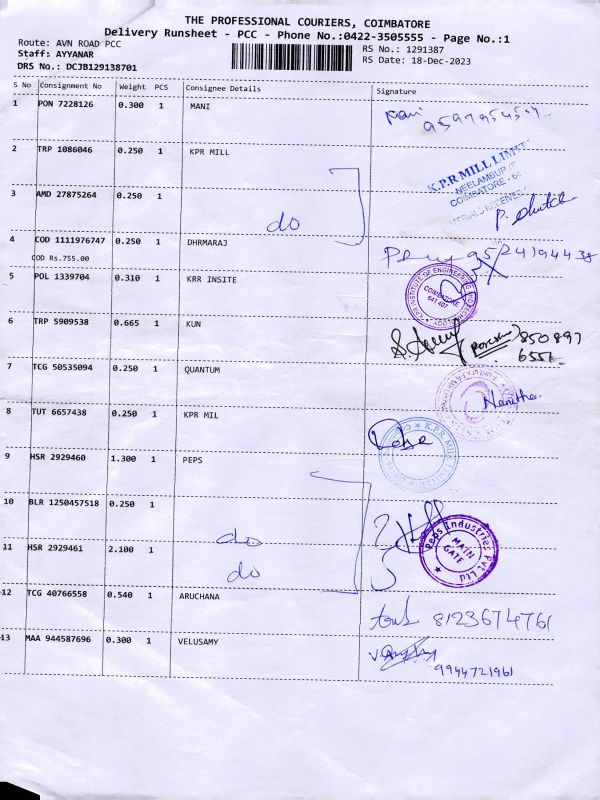 THE PROFESSIONAL COURIERS, COIMBATORE
Delivery Runsheet - PCC - Phone No.:0422-3505555 - Page No.:1
Route: AVN ROAD PCC
RS No.: 1291387
Staff: AYYANAR
RS Date: 18-Dec-2023
DRS No.: DCJB129138701
S No Consignment No Weight PCS Consignee Details Signature
1 PON 7228126 0.300 1 MANI
2 TRP 1086046 0.250 1 KPR MILL
K.P.R MILL LIMIT
NEELAMBUR
COIMBATORE - 64
3 AMD 27875264 0.250 1 do
4 COD 1111976747 0.250 1 DHRMARAJ 9524194438
COD Rs.755.00
5 POL 1339704 0.310 1 KRR INSITE
COIMBATORE
641 407
6 TRP 5909538 0.665 1 KUN 850897
6551
7 TCG 50535094 0.250 1 QUANTUM
8 TUT 6657438 0.250 1 KPR MIL
9 HSR 2929460 1.300 1 PEPS
10 BLR 1250457518 0.250 1 do
Peps Industries Pvt Ltd
MAIN
GATE
11 HSR 2929461 2.100 1 do
12 TCG 40766558 0.540 1 ARUCHANA 8123674761
13 MAA 944587696 0.300 1 VELUSAMY
9944721961